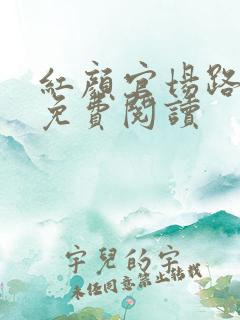 紅顏官場路
免費閱讀
宇兒的字
未经同意禁止转载